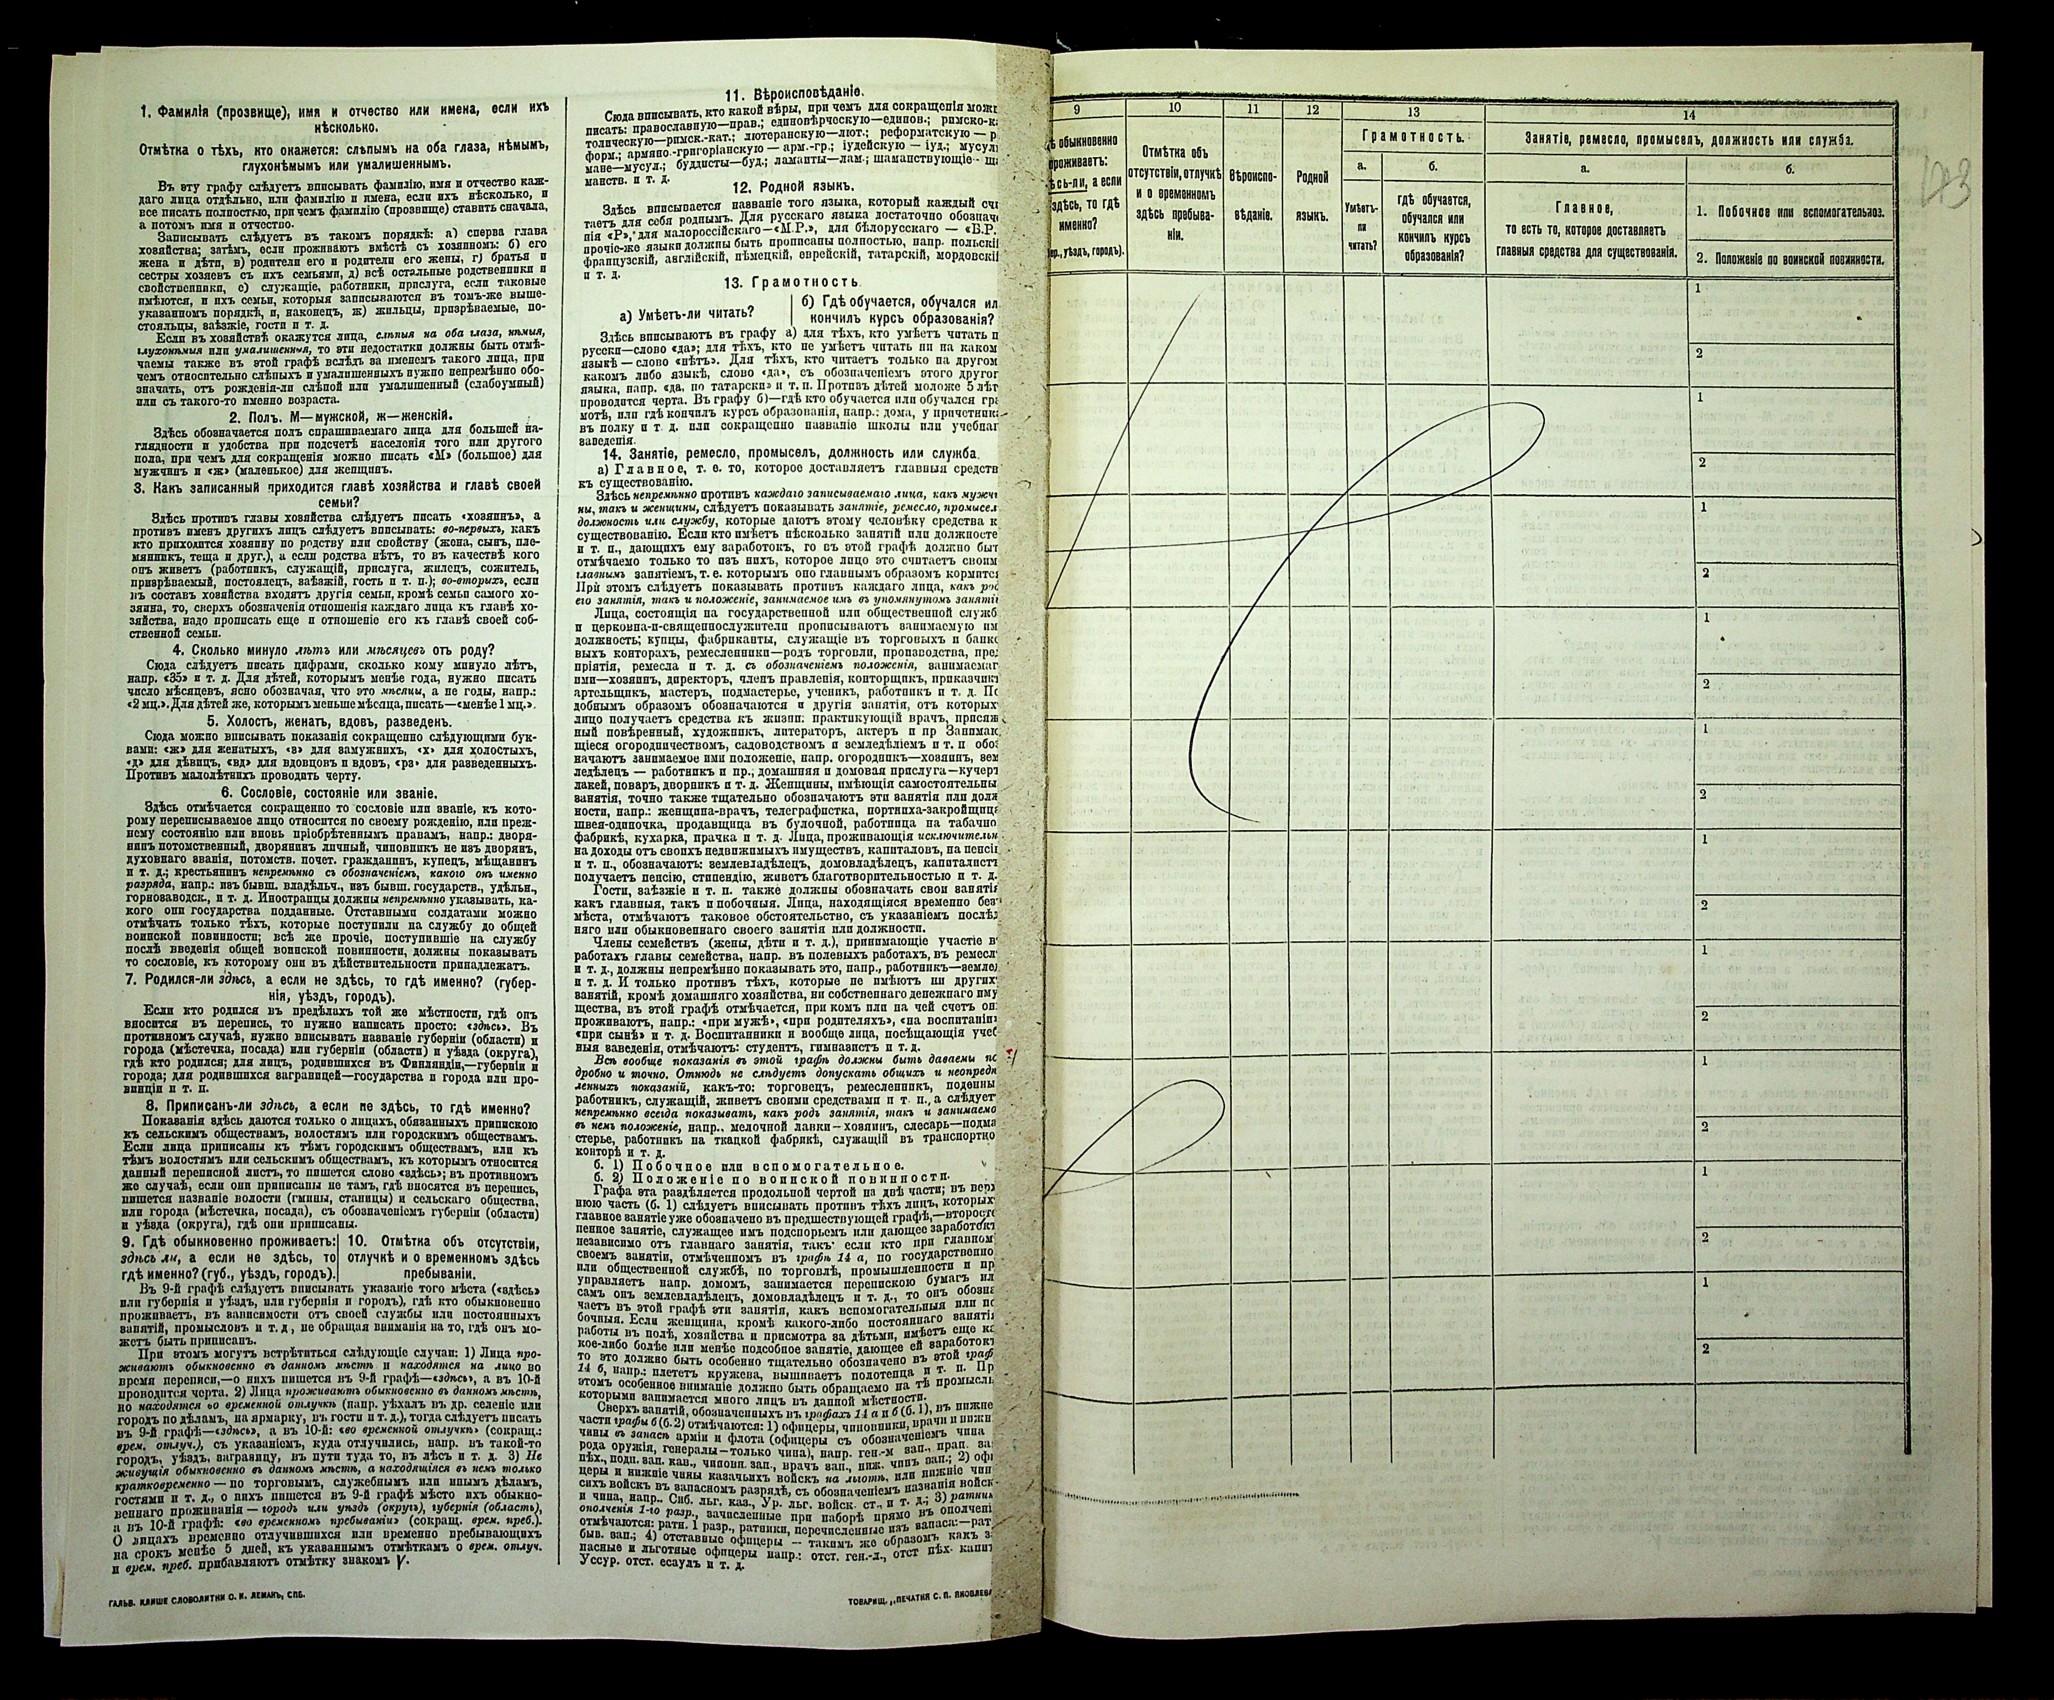 1. Фамилія (прозвище), имя и отчество или имена, если ихъ
нѣсколько.
Отмѣтка о тѣхъ, кто окажется: слѣпымъ на оба глаза, нѣмымъ,
глухонѣмымъ или умалишеннымъ.
Въ эту графу слѣдуетъ вписывать фамилію, имя и отчество каж-
даго лица отдѣльно, или фамилію и имена, если ихъ нѣсколько, и
все писать полностью, при чемъ фамилію (прозвище) ставить сначала,
а потомъ имя и отчество.
Записывать слѣдуетъ въ такомъ порядкѣ: а) сперва глава
хозяйства; затѣмъ, если проживаютъ вмѣстѣ съ хозяиномъ: б) его
жена и дѣти, в) родители его и родители его жены, г) братья и
сестры хозяевъ съ ихъ семьями, д) всѣ остальные родственники и
свойственники, е) служащіе, работники, прислуга, если таковые
имѣются, и ихъ семьи, которыя записываются въ томъ-же выше-
указанномъ порядкѣ, и, наконецъ, ж) жильцы, призрѣваемые, по-
стояльцы, заѣзжіе, гости и т. д.
Если въ хозяйствѣ окажутся лица, слѣпыя на оба глаза, нѣмыя,
глухонѣмыя или умалишенныя, то эти недостатки должны быть отмѣ-
чаемы также въ этой графѣ вслѣдъ за именемъ такого лица, при
чемъ относительно слѣпыхъ и умалишенныхъ нужно непремѣнно обо-
значать, отъ рожденія-ли слѣпой или умалишенный (слабоумный)
или съ такого-то именно возраста.
2. Полъ. М—мужской, ж—женскій.
Здѣсь обозначается полъ спрашиваемаго лица для большей на-
глядности и удобства при подсчетѣ населенія того или другого
пола, при чемъ для сокращенія можно писать «М» (большое) для
мужчинъ и «ж» (маленькое) для женщинъ.
3. Какъ записанный приходится главѣ хозяйства и главѣ своей
семьи?
Здѣсь противъ главы хозяйства слѣдуетъ писать «хозяинъ», а
противъ именъ другихъ лицъ слѣдуетъ вписывать: во-первыхъ, какъ
кто приходится хозяину по родству или свойству (жена, сынъ, пле-
мянникъ, теща и друг.), а если родства нѣтъ, то въ качествѣ кого
онъ живетъ (работникъ, служащій, прислуга, жилецъ, сожитель,
призрѣваемый, постоялецъ, заѣзжій, гость и т. п.); во-вторыхъ, если
въ составъ хозяйства входятъ другія семьи, кромѣ семьи самого хо-
зяина, то, сверхъ обозначенія отношенія каждаго лица къ главѣ хо-
зяйства, надо прописать еще и отношеніе его къ главѣ своей соб-
ственной семьи.
4. Сколько минуло лѣтъ или мѣсяцевъ отъ роду?
Сюда слѣдуетъ писать цифрами, сколько кому минуло лѣтъ,
напр. «35» и т. д. Для дѣтей, которымъ менѣе года, нужно писать
число мѣсяцевъ, ясно обозначая, что это мѣсяцы, а не годы, напр.:
«2 мц.». Для дѣтей же, которымъ меньше мѣсяца, писать—«менѣе 1 мц.».
5. Холостъ, женатъ, вдовъ, разведенъ.
Сюда можно вписывать показанія сокращенно слѣдующими бук-
вами: «ж» для женатыхъ, «з» для замужнихъ, «х» для холостыхъ,
«д» для дѣвицъ, «вд» для вдовцовъ и вдовъ, «рз» для разведенныхъ.
Противъ малолѣтнихъ проводить черту.
6. Сословіе, состояніе или званіе.
Здѣсь отмѣчается сокращенно то сословіе или званіе, къ кото-
рому переписываемое лицо относится по своему рожденію, или преж-
нему состоянію или вновь пріобрѣтеннымъ правамъ, напр.: дворя-
нинъ потомственный, дворянинъ личный, чиновникъ не изъ дворянъ,
духовнаго званія, потомств. почет. гражданинъ, купецъ, мѣщанинъ
и т. д.; крестьянинъ непремѣнно съ обозначеніемъ, какого онъ именно
разряда, напр.: изъ бывш. владѣльч., изъ бывш. государств., удѣльн.,
горнозаводск., и т. д. Иностранцы должны непремѣнно указывать, ка-
кого они государства подданные. Отставными солдатами можно
отмѣчать только тѣхъ, которые поступили на службу до общей
воинской повинности; всѣ же прочіе, поступившіе на службу
послѣ введенія общей воинской повинности, должны показывать
то сословіе, къ которому они въ дѣйствительности принадлежатъ.
7. Родился-ли здѣсь, а если не здѣсь, то гдѣ именно? (губер-
нія, уѣздъ, городъ).
Если кто родился въ предѣлахъ той же мѣстности, гдѣ онъ
вносится въ перепись, то нужно написать просто: «здѣсь». Въ
противномъ случаѣ, нужно вписывать названіе губерніи (области) и
города (мѣстечка, посада) или губерніи (области) и уѣзда (округа),
гдѣ кто родился; для лицъ, родившихся въ Финляндіи,—губерніи и
города; для родившихся заграницей—государства и города или про-
винціи и т. п.
8. Приписанъ-ли здѣсь, а если не здѣсь, то гдѣ именно?
Показанія здѣсь даются только о лицахъ, обязанныхъ припискою
къ сельскимъ обществамъ, волостямъ или городскимъ обществамъ.
Если лица приписаны къ тѣмъ городскимъ обществамъ, или къ
тѣмъ волостямъ или сельскимъ обществамъ, къ которымъ относится
данный переписной листъ, то пишется слово «здѣсь»; въ противномъ
же случаѣ, если они приписаны не тамъ, гдѣ вносятся въ перепись,
пишется названіе волости (гмины, станицы) и сельскаго общества,
или города (мѣстечка, посада), съ обозначеніемъ губерніи (области)
и уѣзда (округа), гдѣ они приписаны.
9. Гдѣ обыкновенно проживаетъ:
здѣсь ли, а если не здѣсь, то
гдѣ именно? (губ., уѣздъ, городъ).
10. Отмѣтка объ отсутствіи,
отлучкѣ и о временномъ здѣсь
пребываніи.
Въ 9-й графѣ слѣдуетъ вписывать указаніе того мѣста («здѣсь»
или губернія и уѣздъ, или губернія и городъ), гдѣ кто обыкновенно
проживаетъ, въ зависимости отъ своей службы или постоянныхъ
занятій, промысловъ и т. д., не обращая вниманія на то, гдѣ онъ мо-
жетъ быть приписанъ.
При этомъ могутъ встрѣтиться слѣдующіе случаи: 1) Лица про-
живаютъ обыкновенно въ данномъ мѣстѣ и находятся на лицо во
время переписи,—о нихъ пишется въ 9-й графѣ—«здѣсь», а въ 10-й
проводится черта. 2) Лица проживаютъ обыкновенно въ данномъ мѣстѣ,
но находятся во временной отлучкѣ (напр. уѣхалъ въ др. селеніе или
городъ по дѣламъ, на ярмарку, въ гости и т. д.), тогда слѣдуетъ писать
въ 9-й графѣ—«здѣсь», а въ 10-й: «во временной отлучкѣ» (сокращ.:
врем. отлуч.), съ указаніемъ, куда отлучились, напр. въ такой-то
городъ, уѣздъ, заграницу, въ пути туда то, въ лѣсъ и т. д. 3) Не
живущія обыкновенно въ данномъ мѣстѣ, а находящіяся въ немъ только
кратковременно — по торговымъ, служебнымъ или инымъ дѣламъ,
гостями и т. д., о нихъ пишется въ 9-й графѣ мѣсто ихъ обыкно-
веннаго проживанія — городъ или уѣздъ (округъ), губернія (область),
а въ 10-й графѣ: «во временномъ пребываніи» (сокращ. врем. преб.).
О лицахъ временно отлучившихся или временно пребывающихъ
на срокъ менѣе 5 дней, къ указаннымъ отмѣткамъ о врем. отлуч.
и врем. преб. прибавляютъ отмѣтку знакомъ V.
ГАЛЬВ. КЛИШЕ СЛОВОЛИТНИ О. И. ЛЕМАНЪ, СПБ.
11. Вѣроисповѣданіе.
Сюда вписывать, кто какой вѣры, при чемъ для сокращенія можн
писать: православную—прав.; единовѣрческую—единов.; римско-к
толическую—римск.-кат.; лютеранскую—лют.; реформатскую — р
форм.; армяно-григоріанскую — арм.-гр.; іудейскую — іуд.; мусул
мане—мусул.; буддисты—буд.; ламаиты—лам.; шаманствующіе— ш
манств. и т. д.
12. Родной языкъ.
Здѣсь вписывается названіе того языка, который каждый счи
таетъ для себя роднымъ. Для русскаго языка достаточно обозначе
нія «Р», для малороссійскаго—«М.Р.», для бѣлорусскаго — «Б.Р.
прочіе-же языки должны быть прописаны полностью, напр. польскій
французскій, англійскій, нѣмецкій, еврейскій, татарскій, мордовскій
и т. д.
13. Грамотность
а) Умѣетъ-ли читать?
б) Гдѣ обучается, обучался ил
кончилъ курсъ образованія?
Здѣсь вписываютъ въ графу а) для тѣхъ, кто умѣетъ читать п
русски—слово «да»; для тѣхъ, кто не умѣетъ читать ни на каком
языкѣ — слово «нѣтъ». Для тѣхъ, кто читаетъ только на другом
какомъ либо языкѣ, слово «да», съ обозначеніемъ этого другог
языка, напр. «да, по татарски» и т. п. Противъ дѣтей моложе 5 лѣт
проводится черта. Въ графу б)—гдѣ кто обучается или обучался гра
мотѣ, или гдѣ кончилъ курсъ образованія, напр.: дома, у причетника
въ полку и т. д. или сокращенно названіе школы или учебнаг
заведенія.
14. Занятіе, ремесло, промыселъ, должность или служба.
а) Главное, т. е. то, которое доставляетъ главныя средств
къ существованію.
Здѣсь непремѣнно противъ каждаго записываемаго лица, какъ мужчи
ны, такъ и женщины, слѣдуетъ показывать занятіе, ремесло, промысел
должность или службу, которые даютъ этому человѣку средства к
существованію. Если кто имѣетъ нѣсколько занятій или должносте
и т. п., дающихъ ему заработокъ, то въ этой графѣ должно быт
отмѣчаемо только то изъ нихъ, которое лицо это считаетъ своим
главнымъ занятіемъ, т. е. которымъ оно главнымъ образомъ кормится
При этомъ слѣдуетъ показывать противъ каждаго лица, какъ род
его занятія, такъ и положеніе, занимаемое имъ въ упомянутомъ занятіи
Лица, состоящія на государственной или общественной служб
и церковно-и-священнослужители прописываютъ занимаемую им
должность; купцы, фабриканты, служащіе въ торговыхъ и банко
выхъ конторахъ, ремесленники—родъ торговли, производства, пред
пріятія, ремесла и т. д. съ обозначеніемъ положенія, занимаемаг
ими—хозяинъ, директоръ, членъ правленія, конторщикъ, приказчикъ
артельщикъ, мастеръ, подмастерье, ученикъ, работникъ и т. д. По
добнымъ образомъ обозначаются и другія занятія, отъ которыхъ
лицо получаетъ средства къ жизни: практикующій врачъ, присяж
ный повѣренный, художникъ, литераторъ, актеръ и пр Занимаю
щіеся огородничествомъ, садоводствомъ и земледѣліемъ и т. п обоз
начаютъ занимаемое ими положеніе, напр. огородникъ—хозяинъ, зем
ледѣлецъ — работникъ и пр.; домашняя и домовая прислуга—кучеръ
лакей, поваръ, дворникъ и т. д. Женщины, имѣющія самостоятельны
занятія, точно также тщательно обозначаютъ эти занятія или долж
ности, напр.: женщина-врачъ, телеграфистка, портниха-закройщица
швея-одиночка, продавщица въ булочной, работница на табачно
фабрикѣ, кухарка, прачка и т. д. Лица, проживающія исключительн
на доходы отъ своихъ недвижимыхъ имуществъ, капиталовъ, на пенсіи
и т. п., обозначаютъ: землевладѣлецъ, домовладѣлецъ, капиталистъ
получаетъ пенсію, стипендію, живетъ благотворительностью и т. д.
Гости, заѣзжіе и т. п. также должны обозначать свои занятія
какъ главныя, такъ и побочныя. Лица, находящіяся временно безъ
мѣста, отмѣчаютъ таковое обстоятельство, съ указаніемъ послѣд
няго или обыкновеннаго своего занятія или должности.
Члены семействъ (жены, дѣти и т. д.), принимающіе участіе в
работахъ главы семейства, напр. въ полевыхъ работахъ, въ ремесл
и т. д., должны непремѣнно показывать это, напр., работникъ—землед
и т. д. И только противъ тѣхъ, которые не имѣютъ ни других
занятій, кромѣ домашняго хозяйства, ни собственнаго денежнаго иму
щества, въ этой графѣ отмѣчается, при комъ или на чей счетъ он
проживаютъ, напр.: «при мужѣ», «при родителяхъ», «на воспитаніи»
«при сынѣ» и т. д. Воспитанники и вообще лица, посѣщающія учеб
ныя заведенія, отмѣчаютъ: студентъ, гимназистъ и т. д.
Всѣ вообще показанія въ этой графѣ должны быть даваемы по
дробно и точно. Отнюдь не слѣдуетъ допускать общихъ и неопредѣ
ленныхъ показаній, какъ-то: торговецъ, ремесленникъ, поденны
работникъ, служащій, живетъ своими средствами и т. п., а слѣдует
непремѣнно всегда показывать, какъ родъ занятія, такъ и занимаемо
въ немъ положеніе, напр.. мелочной лавки—хозяинъ, слесарь—подма
стерье, работникъ на ткацкой фабрикѣ, служащій въ транспортно
конторѣ и т. д.
б. 1) Побочное или вспомогательное.
б. 2) Положеніе по воинской повинности.
Графа эта раздѣляется продольной чертой на двѣ части; въ верх
нюю часть (б. 1) слѣдуетъ вписывать противъ тѣхъ лицъ, которыхъ
главное занятіе уже обозначено въ предшествующей графѣ,—второсте
пенное занятіе, служащее имъ подспорьемъ или дающее заработокъ
независимо отъ главнаго занятія, такъ если кто при главном
своемъ занятіи, отмѣченномъ въ графѣ 14 а, по государственно
или общественной службѣ, по торговлѣ, промышленности и пр
управляетъ напр. домомъ, занимается перепискою бумагъ ил
самъ онъ землевладѣлецъ, домовладѣлецъ и т. д., то онъ обозна
чаетъ въ этой графѣ эти занятія, какъ вспомогательныя или по
бочныя. Если женщина, кромѣ какого-либо постояннаго занятія
работы въ полѣ, хозяйства и присмотра за дѣтьми, имѣетъ еще ка
кое-либо болѣе или менѣе подсобное занятіе, дающее ей заработокъ
то это должно быть особенно тщательно обозначено въ этой граф
14 б, напр.: плететъ кружева, вышиваетъ полотенца и т. п. Пр
этомъ особенное вниманіе должно быть обращаемо на тѣ промыслы
которыми занимается много лицъ въ данной мѣстности.
Сверхъ занятій, обозначенныхъ въ графахъ 14 а и б (б. 1), въ нижне
части графы б (б. 2) отмѣчаются: 1) офицеры, чиновники, врачи и нижн
чины въ запасѣ арміи и флота (офицеры съ обозначеніемъ чина
рода оружія, генералы—только чина), напр. ген.-м зап., прап. за
пѣх., подп. зап. кав., чиновн. зап., врачъ зап., ниж. чинъ зап.; 2) офи
церы и нижніе чины казачьихъ войскъ на льготѣ, или нижніе чин
сихъ войскъ въ запасномъ разрядѣ, съ обозначеніемъ названія войск
и чина, напр.. Сиб. льг. каз., Ур. льг. войск. ст., и т. д.; 3) ратник
ополченія 1-го разр., зачисленные при наборѣ прямо въ ополчені
отмѣчаются: ратн. 1 разр., ратники, перечисленные изъ запаса:—рат
быв. зап.; 4) отставные офицеры — такимъ же образомъ какъ за
пасные и льготные офицеры напр.: отст. ген.-л., отст пѣх. капит
Уссур. отст. есаулъ и т. д.
ТОВАРИЩ. „ПЕЧАТНЯ С. П. ЯКОВЛЕВА
9
ѣ обыкновенно
роживаетъ:
ѣсь-ли, а если
здѣсь, то гдѣ
именно?
ер., уѣздъ, городъ).
10
Отмѣтка объ
отсутствіи, отлучкѣ
и о временномъ
здѣсь пребыва-
ніи.
11
Вѣроиспо-
вѣданіе.
12
Родной
языкъ.
13
Грамотность.
а.
Умѣетъ-
ли
читать?
б.
гдѣ обучается,
обучался или
кончилъ курсъ
образованія?
14
Занятіе, ремесло, промыселъ, должность или служба.
а.
Главное,
то есть то, которое доставляетъ
главныя средства для существованія.
б.
1. Побочное или вспомогательное.
2. Положеніе по воинской повинности.
1
2
1
2
1
2
1
2
1
2
1
2
1
2
1
2
1
2
1
2